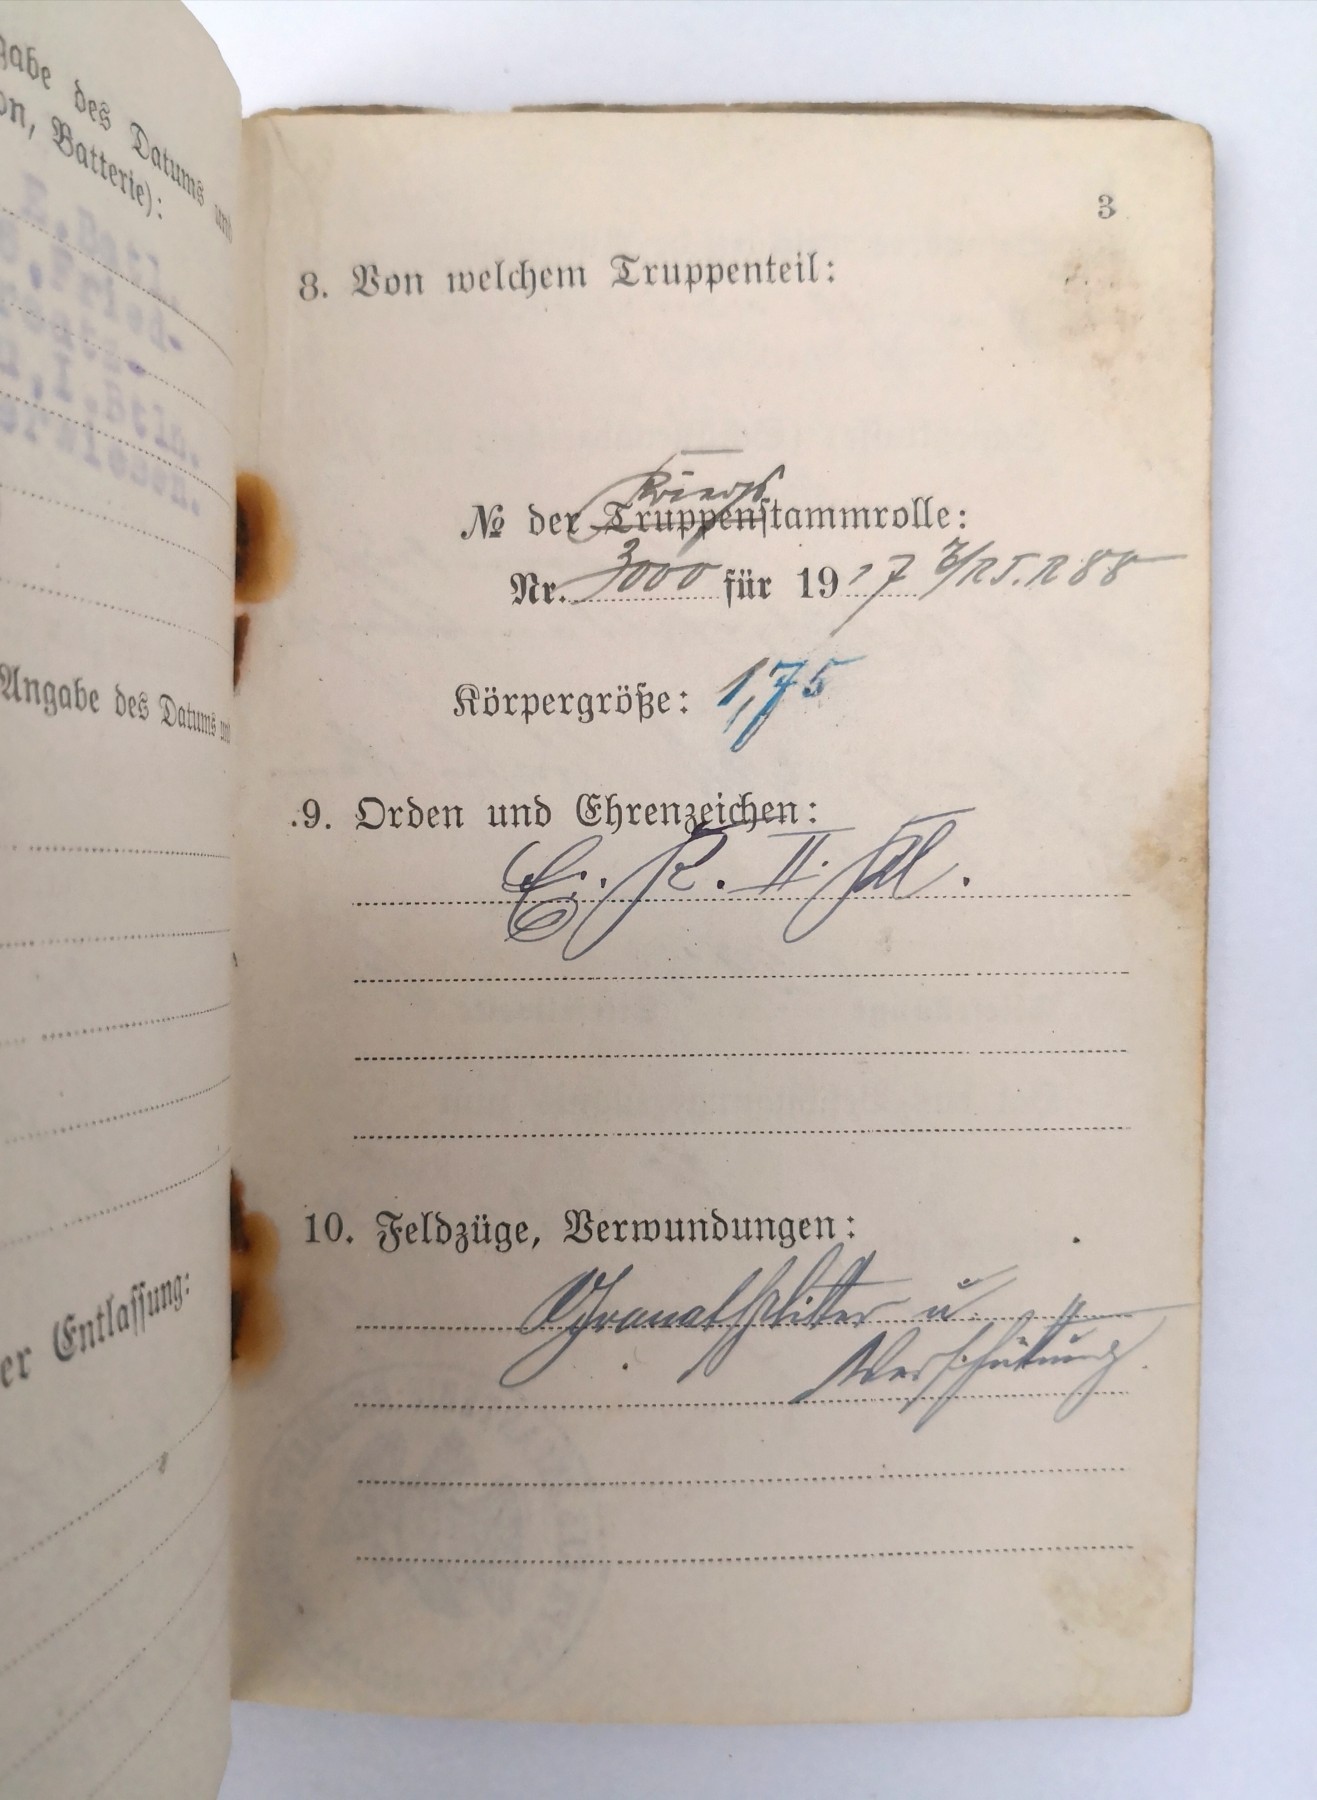 gabe des Datums und
on, Batterie):
E.Batl.
.Fried-
u.I.Btln.
erwiesen.
Angabe des Datums und
er Entlassung:
3
8. Von welchem Truppenteil:
Kriegs
№ der Truppenstammrolle:
Nr. 3000 für 1917 7/R.I.R 88
Körpergröße: 1,75
9. Orden und Ehrenzeichen:
E. K. II. Kl.
10. Feldzüge, Verwundungen:
Granatsplitter u.
Verschüttung